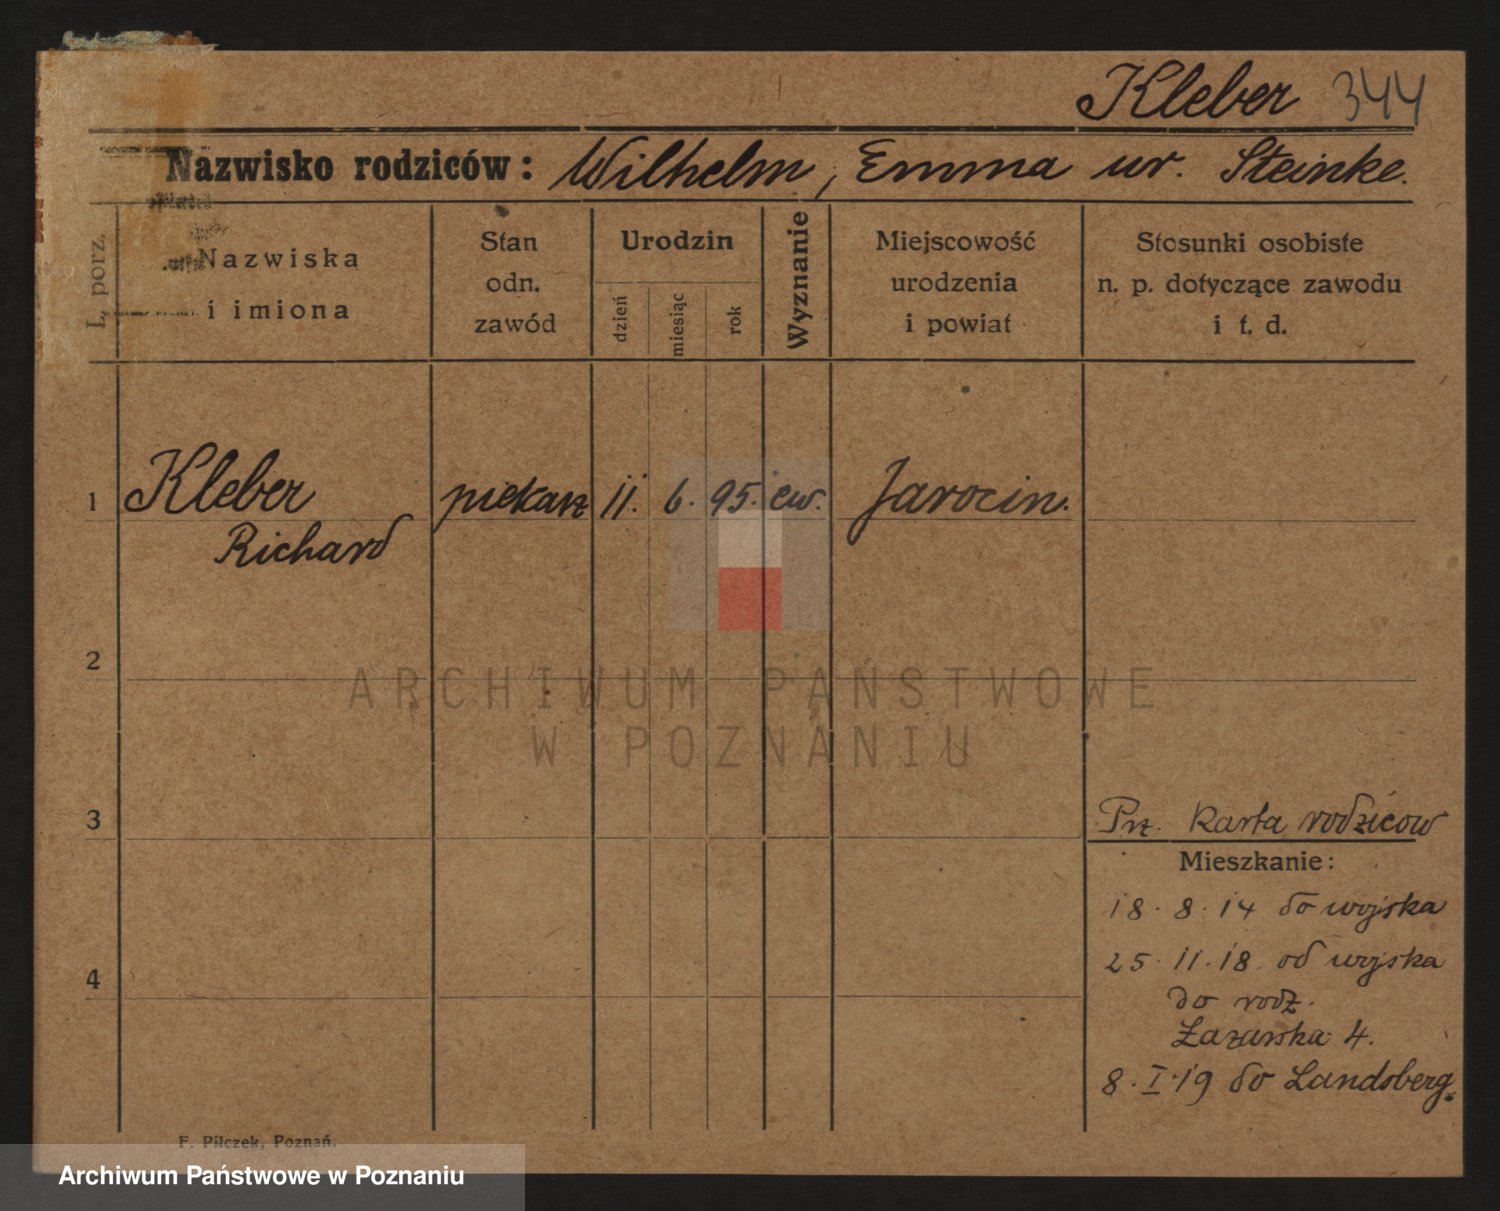 Kleber 344
Nazwisko rodziców: Wilhelm, Emma ur. Steinke.
L. porz.
Nazwiska
i imiona
Stan
odn.
zawód
Urodzin
dzień
miesiąc
rok
Wyznanie
Miejscowość
urodzenia
i powiat
Stosunki osobiste
n. p. dotyczące zawodu
i t. d.
1 Kleber piekarz 11. 6. 95. ew. Jarocin.
Richard
2
ARCHIWUM PAŃSTWOWE
W POZNANIU
3
Prz. Karta rodziców
Mieszkanie:
18. 8. 14 do wojska
25. 11. 18. od wojska
4
do rodz.
Łazarska 4.
8. I. 19 do Landsberg.
F. Pilczek, Poznań.
Archiwum Państwowe w Poznaniu